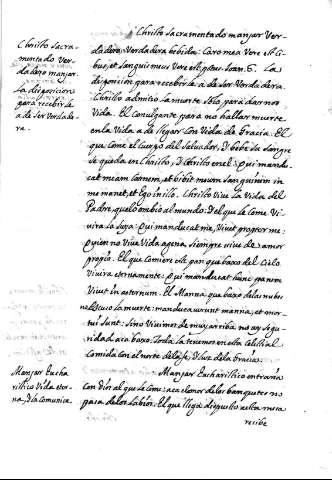 Christo Sacra-
mentado Ver-
dadero manjar.
La disposicion
para recibirle
a de Ser Verdade
ra.
Christo Sacramentado manjar Ver-
dadero, Verdadera bebida: Caro mea Vere est Ci-
bus, et Sanguis meus Vere est potus. Ioan. 6. La
disposicion para recibirle a de Ser Verdadera.
Christo admitio la muerte Solo para darnos
Vida. El Comulgante para no hallar muerte
en la Vida a de llegar Con Vida de Gracia. El
que Come el Cuerpo del Salvador, I bebe su Sangre
Se queda en Christo, I Christo en el: Qui mandu-
cat meam Carnem, et bibit meum Sanguinem in
me manet, et Ego in illo. Christo Vive la Vida del
Padre, que lo embió al mundo: I el que le Come Vi-
vira la Suya: Qui manducat me, Vivet propter me:
quien no Vive Vida agena, Siempre vive de amor
propio. El que Comiere este pan que baxo del Cielo
Vivira eternamente: Qui manducat hunc panem
Vivet in æternum. El Manna que baxo de las nubes
no Escuso la muerte: manducaverunt manna, et mor-
tui Sunt: Sino Viene de muy arriba no ay Segu-
ridad aca baxo. Toda la tenemos en esta Celestial
Comida con el norte de la fe, I luz de la gracia.
Manjar Eucha-
ristico Vida eter-
na, I la comunica.
Manjar Eucharistico entra
Con Dios al que le Come: aca el onor de los banquetes no
pasa de los labios. El que llega dispuesto a esta mesa
recibe